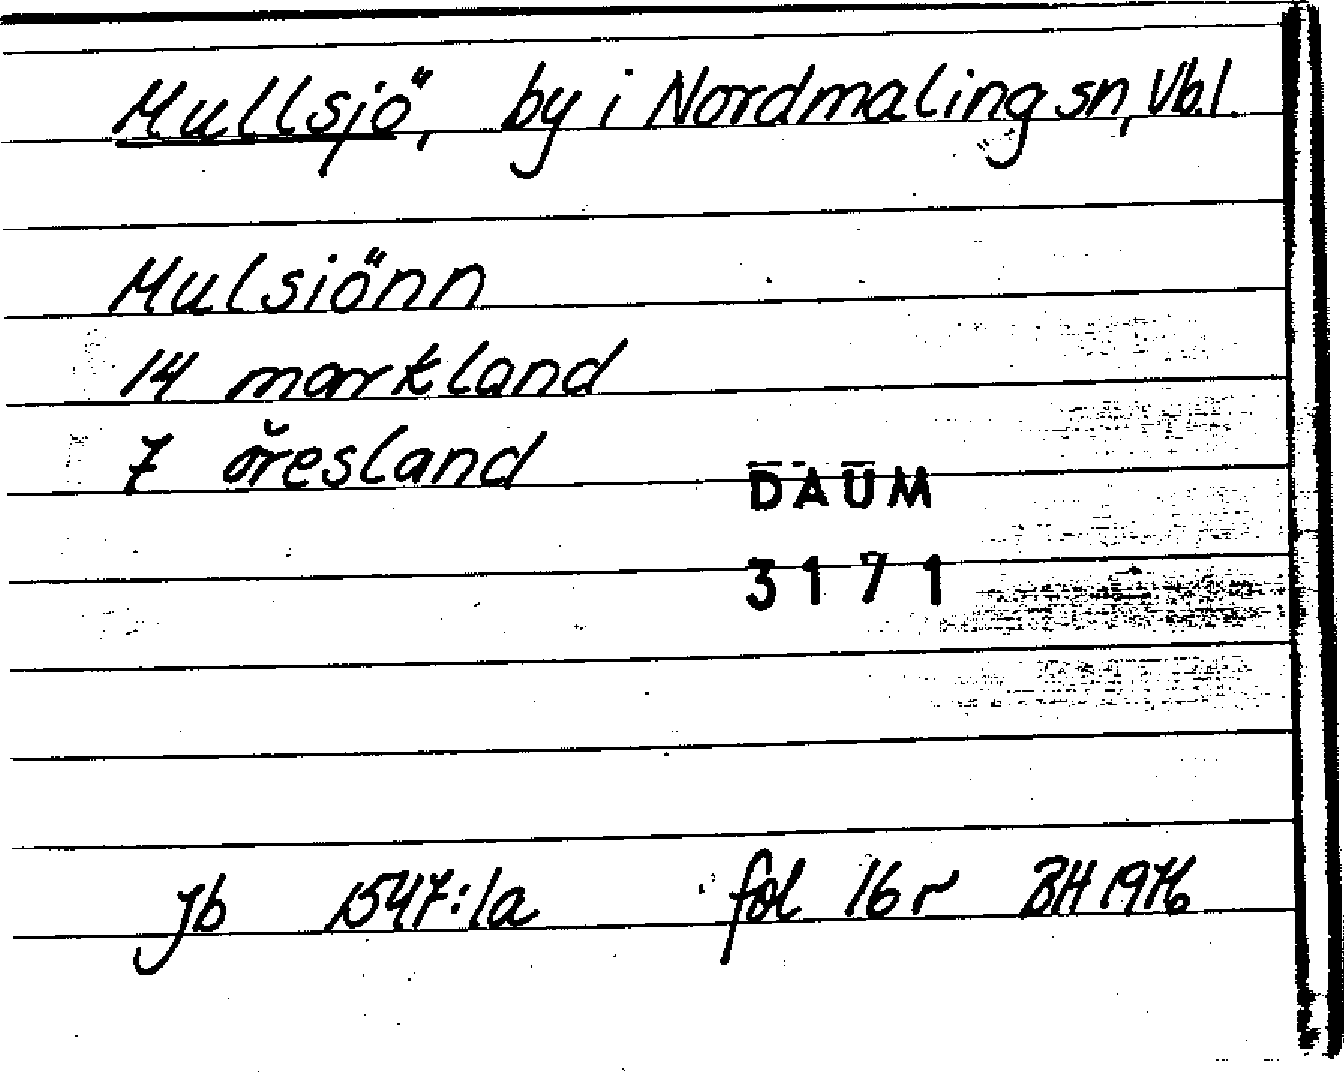 Mullsjö, by i Nordmaling sn, Vb.l.
Mulsiönn
14 markland
7 öresland
DAUM
3171
Jb 1547:1a fol 16 r BH 1976